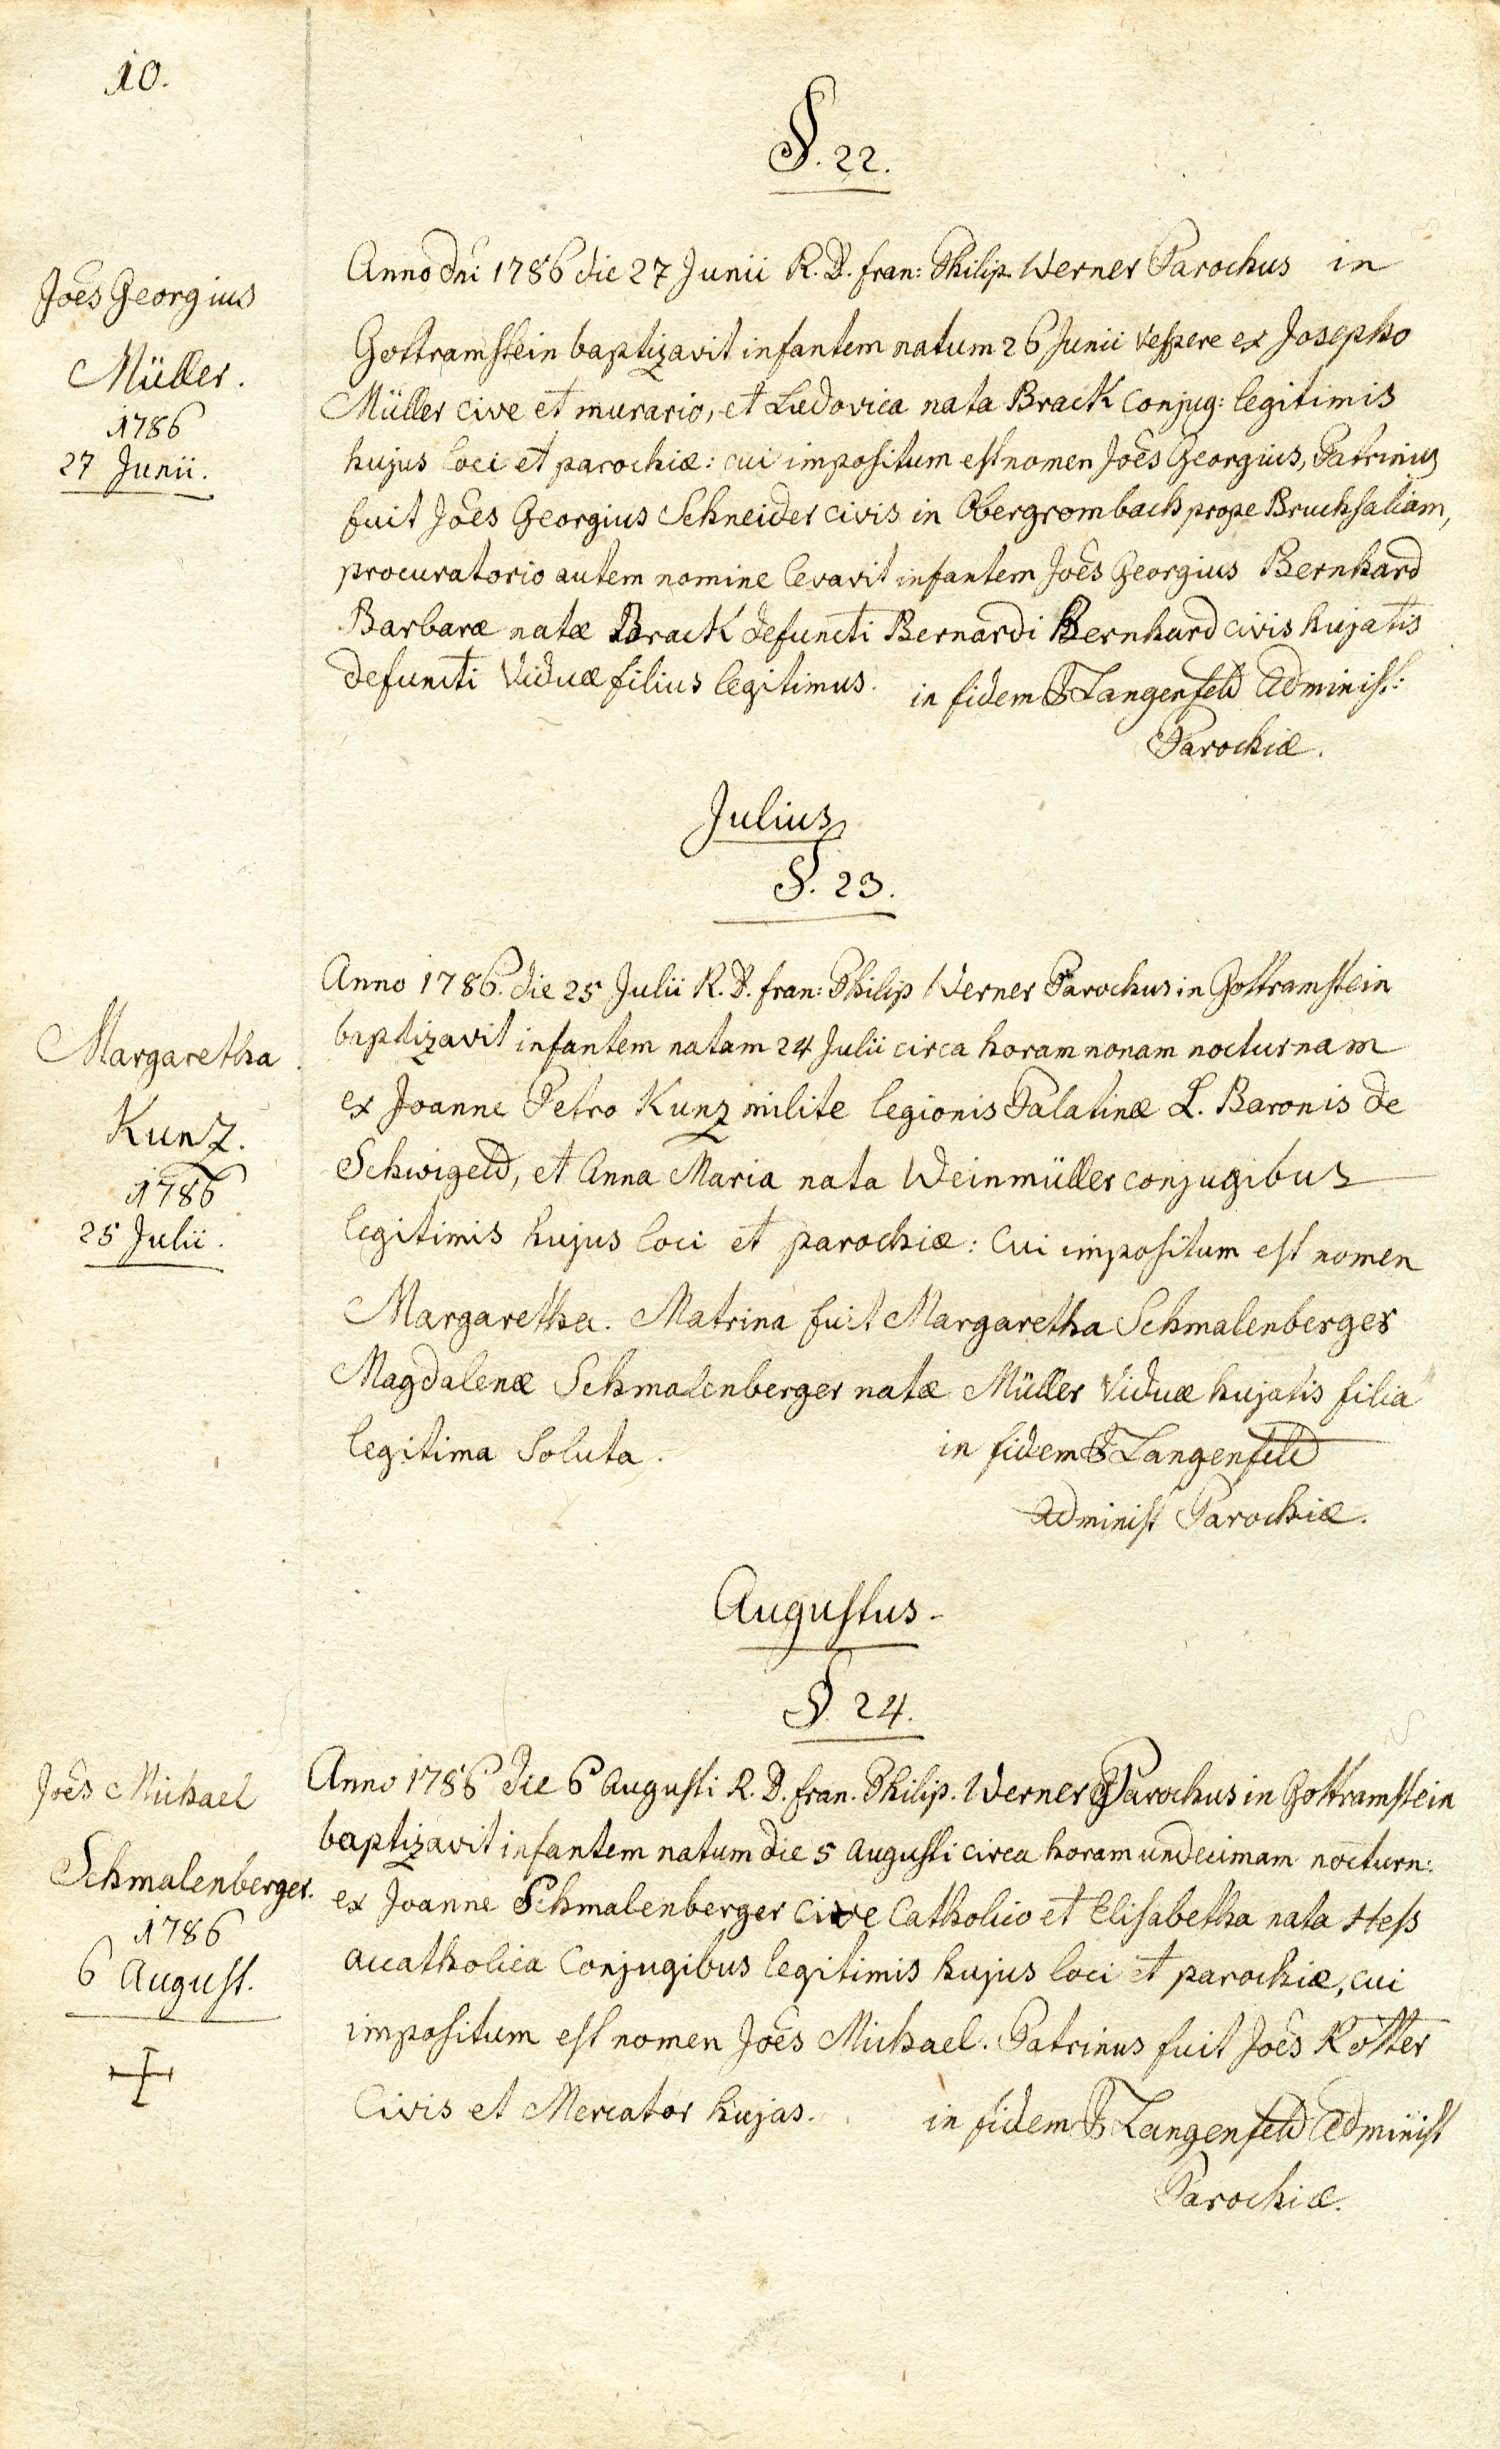 10.
§. 22.
Joês Georgius
Müller.
1786
27 Junii.
Anno dni 1786 die 27 Junii R. D. fran: Philip. Werner Parochus in
Gottramstein baptizavit infantem natum 26 Junii vespere ex Josepho
Müller cive et murario, et Ludovica nata Brack conjug: legitimis
hujus loci et parochiæ: cui impositum est nomen Joês Georgius, Patrinus
fuit Joês Georgius Schneider civis in Obergrombach prope Bruchsaliam,
procuratorio autem nomine levavit infantem Joês Georgius Bernhard
Barbaræ natæ Brack defuncti Bernardi Bernhard civis hujatis
defuncti Viduæ filius legitimus. in fidem Langenfeld Administ:
Parochiæ.
Julius
§. 23.
Margaretha
Kunz.
1786
25 Julii.
Anno 1786. die 25 Julii R. D. fran: Philip Werner Parochus in Gottramstein
baptizavit infantem natam 24 Julii circa horam nonam nocturnam
ex Joanne Petro Kunz milite legionis Palatinæ L. Baronis de
Schwigeld, et Anna Maria nata Weinmüller conjugibus
legitimis hujus loci et parochiæ: cui impositum est nomen
Margaretha. Matrina fuit Margaretha Schmalenberger
Magdalenæ Schmalenberger natæ Müller Viduæ hujatis filia
legitima soluta. in fidem Langenfeld
Administ Parochiæ.
Augustus.
§. 24.
Joês Michael
Schmalenberger.
1786
6 August.
Anno 1786 die 6 Augusti R. D. fran. Philip. Werner Parochus in Gottramstein
baptizavit infantem natum die 5 Augusti circa horam undecimam nocturn:
ex Joanne Schmalenberger cive Catholico et Elisabetha nata Hess
acatholica Conjugibus legitimis hujus loci et parochiæ, cui
impositum est nomen Joês Michael. Patrinus fuit Joês Rotter
Civis et Mercator hujas. in fidem Langenfeld Administ
Parochiæ.